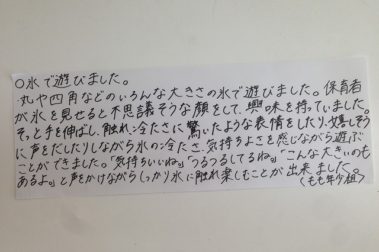 ○氷で遊びました。
丸や四角などのいろんな大きさの氷で遊びました。保育者
が氷を見せると不思議そうな顔をして、興味を持っていました。
そっと手を伸ばし、触れ冷たさに驚いたような表情をしたり、嬉しそう
に声をだしたりしながら氷の冷たさ、気持ちよさを感じながら遊ぶ
ことができました。「気持ちいいね。」「つるつるしてるね。」「こんな大きいのも
あるよ。」と声をかけながらしっかり氷に触れ楽しむことが出来ました。
(もも年少組)